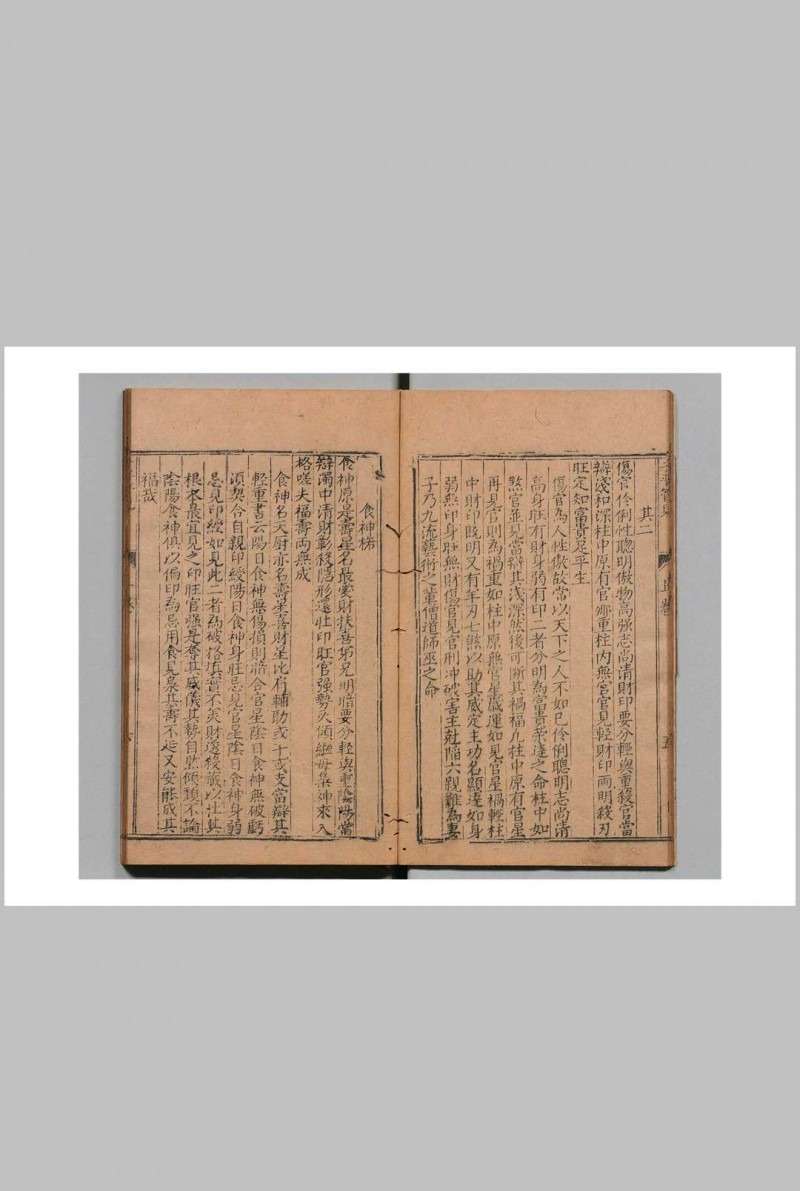 其二
傷官伶俐性聰明傲物高强志尚清財印要分輕與重殺官當
辯淺和深柱中原有官鄉重柱内無官官見輕財印両明殺刃
旺定知富貴足平生
傷官為人性傲故當以天下之人不如已伶俐聰明志尚清
高身旺有財身弱有印二者分明為富貴荣達之命柱中如
煞官並見當辯其浅深然後可断其禍福凡柱中原有官星
再見官則為禍重如柱中原無官星歲運如見官星禍輕柱
中財印既明又有年刃七煞以助其威定主功名顯達如身
弱無印身旺無財傷官見官刑冲破害主玷陥六親難為妻
子乃九流藝術之輩僧道師巫之命
食神格
食神原是壽星名最愛財扶喜弟兄明暗要分輕與重陰陽當
辯濁中清財彰殺隱形還壯印旺官強勢必傾縱毋梟神來入
格嗟夫福壽両無成
食神名天厨亦名壽星喜財星比肩輔助或干或支當辯其
輕重書云陽日食神無傷損則暗合官星陰日食神無破虧
須契合自親印綬陽日食神身旺忌見官星陰日食神身弱
忌見印綬如見此二者為破格填實不美財邊殺蔵以壮其
根本最宜見之印旺官强是奪其威儀其勢自然傾頽不論
陰陽食神俱以偏印為忌用食見梟其壽不延又安能成其
福哉